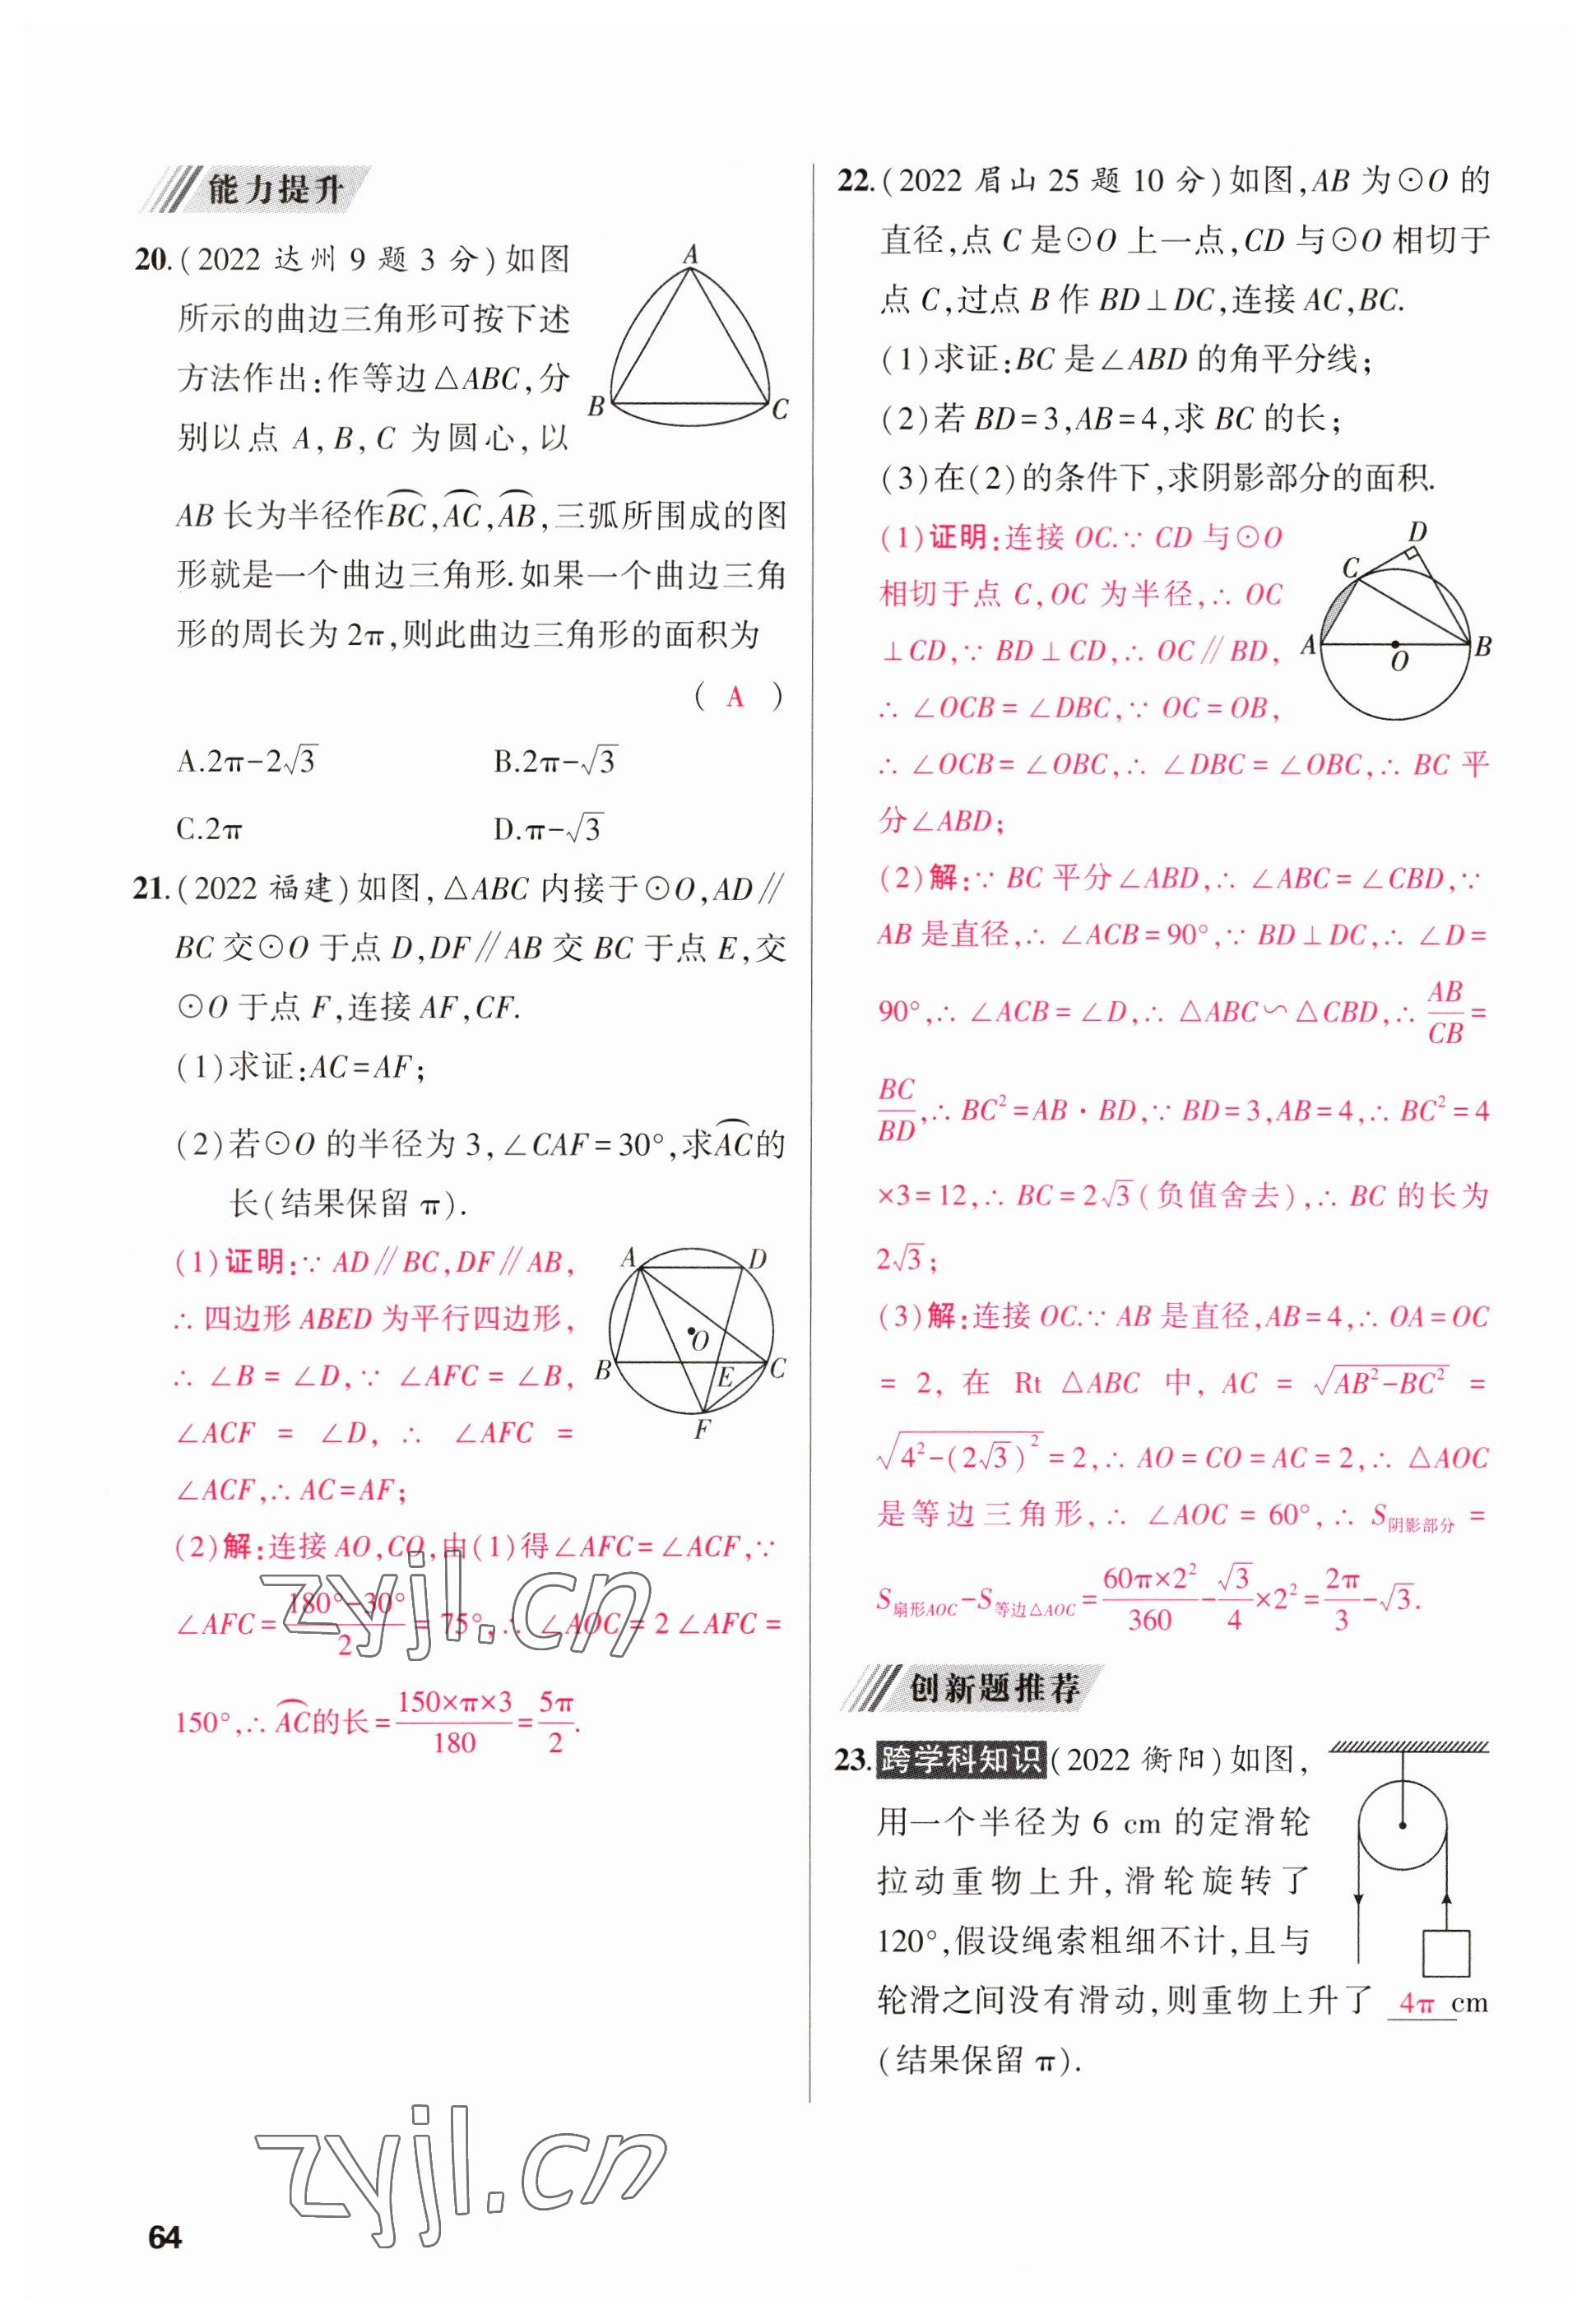 能力提升
20.(2022 达州 9 题 3 分)如图
所示的曲边三角形可按下述
方法作出:作等边△ABC,分
别以点 A,B,C 为圆心,以
AB 长为半径作BC,AC,AB,三弧所围成的图
形就是一个曲边三角形.如果一个曲边三角
形的周长为 2π,则此曲边三角形的面积为
( A )
A.2π-2√3 B.2π-√3
C.2π D.π-√3
A
B
C
21.(2022 福建)如图,△ABC 内接于⊙O,AD∥
BC 交⊙O 于点 D,DF∥AB 交 BC 于点 E,交
⊙O 于点 F,连接 AF,CF.
(1)求证:AC=AF;
(2)若⊙O 的半径为 3,∠CAF=30°,求AC的
长(结果保留 π).
(1)证明:∵ AD∥BC,DF∥AB,
∴四边形 ABED 为平行四边形,
∴ ∠B = ∠D,∵ ∠AFC = ∠B,
∠ACF = ∠D, ∴ ∠AFC =
∠ACF,∴ AC=AF;
A D
O
B E C
F
(2)解:连接 AO,CO,由(1)得∠AFC=∠ACF,∵
∠AFC=(180°-30°)/2=75°,∴ ∠AOC=2∠AFC=
150°,∴ AC的长=(150×π×3)/180=5π/2.
22.(2022 眉山 25 题 10 分)如图,AB 为⊙O 的
直径,点 C 是⊙O 上一点,CD 与⊙O 相切于
点 C,过点 B 作 BD⊥DC,连接 AC,BC.
(1)求证:BC 是∠ABD 的角平分线;
(2)若 BD=3,AB=4,求 BC 的长;
(3)在(2)的条件下,求阴影部分的面积.
(1)证明:连接 OC.∵ CD 与⊙O
相切于点 C,OC 为半径,∴ OC
⊥CD,∵ BD⊥CD,∴ OC∥BD,
∴ ∠OCB=∠DBC,∵ OC=OB,
∴ ∠OCB=∠OBC,∴ ∠DBC=∠OBC,∴ BC 平
分∠ABD;
D
C
A O B
(2)解:∵ BC 平分∠ABD,∴ ∠ABC=∠CBD,∵
AB 是直径,∴ ∠ACB=90°,∵ BD⊥DC,∴ ∠D=
90°,∴ ∠ACB=∠D,∴ △ABC∽△CBD,∴ AB/CB=
BC/BD,∴ BC²=AB·BD,∵ BD=3,AB=4,∴ BC²=4
×3=12,∴ BC=2√3(负值舍去),∴ BC 的长为
2√3;
(3)解:连接 OC.∵ AB 是直径,AB=4,∴ OA=OC
= 2, 在 Rt △ABC 中, AC = √(AB²-BC²) =
√(4²-(2√3)²)=2,∴ AO=CO=AC=2,∴ △AOC
是等边三角形,∴ ∠AOC=60°,∴ S阴影部分=
S扇形AOC-S等边△AOC=(60π×2²)/360-√3/4×2²=2π/3-√3.
创新题推荐
23.跨学科知识(2022 衡阳)如图,
用一个半径为 6 cm 的定滑轮
拉动重物上升,滑轮旋转了
120°,假设绳索粗细不计,且与
轮滑之间没有滑动,则重物上升了 4π cm
(结果保留 π).
zyjl.cn
zyjl.cn
64